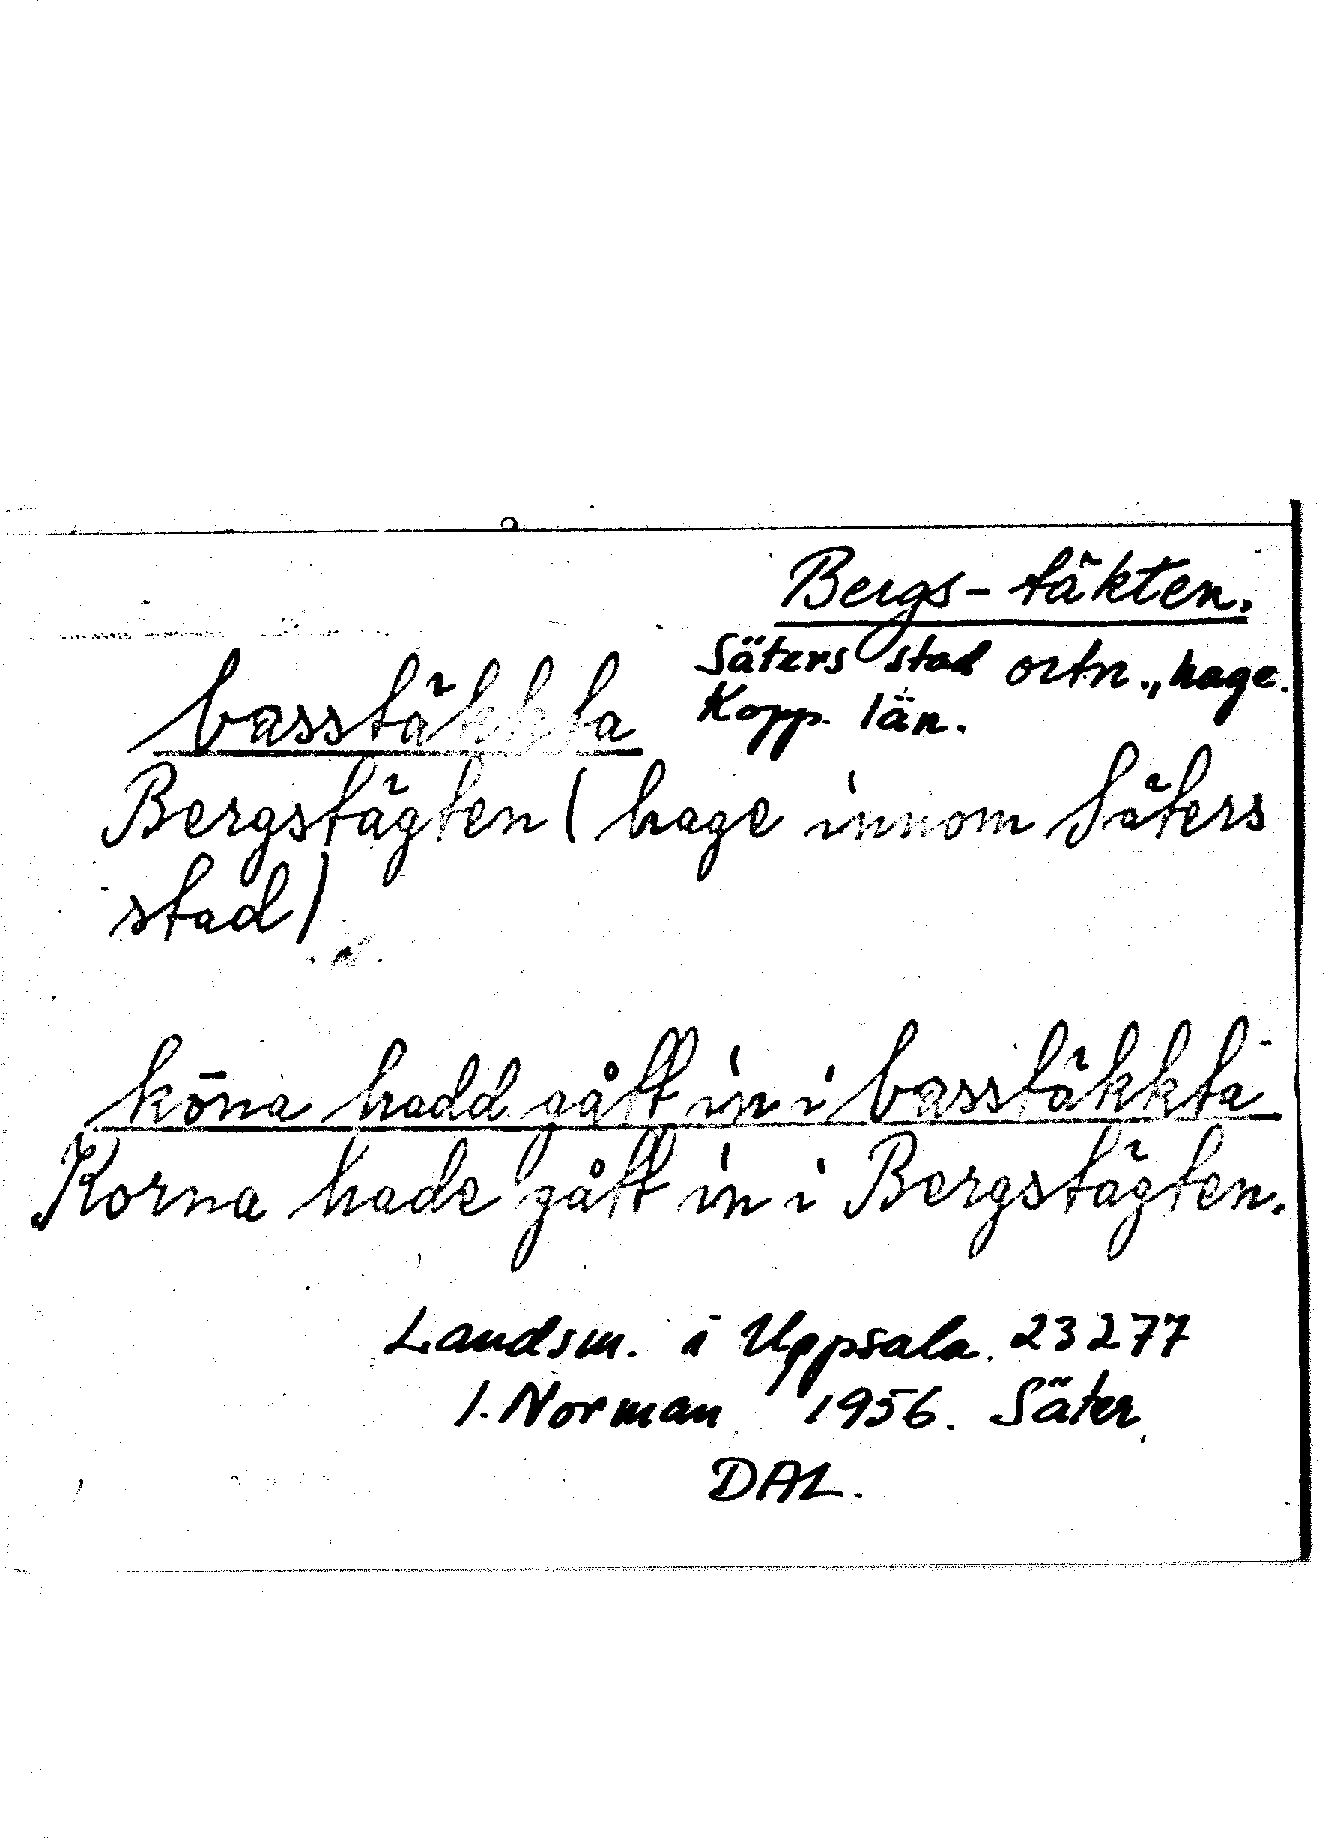 Bergs-täkten.
Säters stad ortn., hage.
Kopp. län.
basstäkkta
Bergstägten (hage innom Säters
stad)
kōna hadd gått in i basstäkkta
Korna hade gått in i Bergstägten.
Landsm. i Uppsala. 23277
I. Norman 1956. Säter.
DAL.